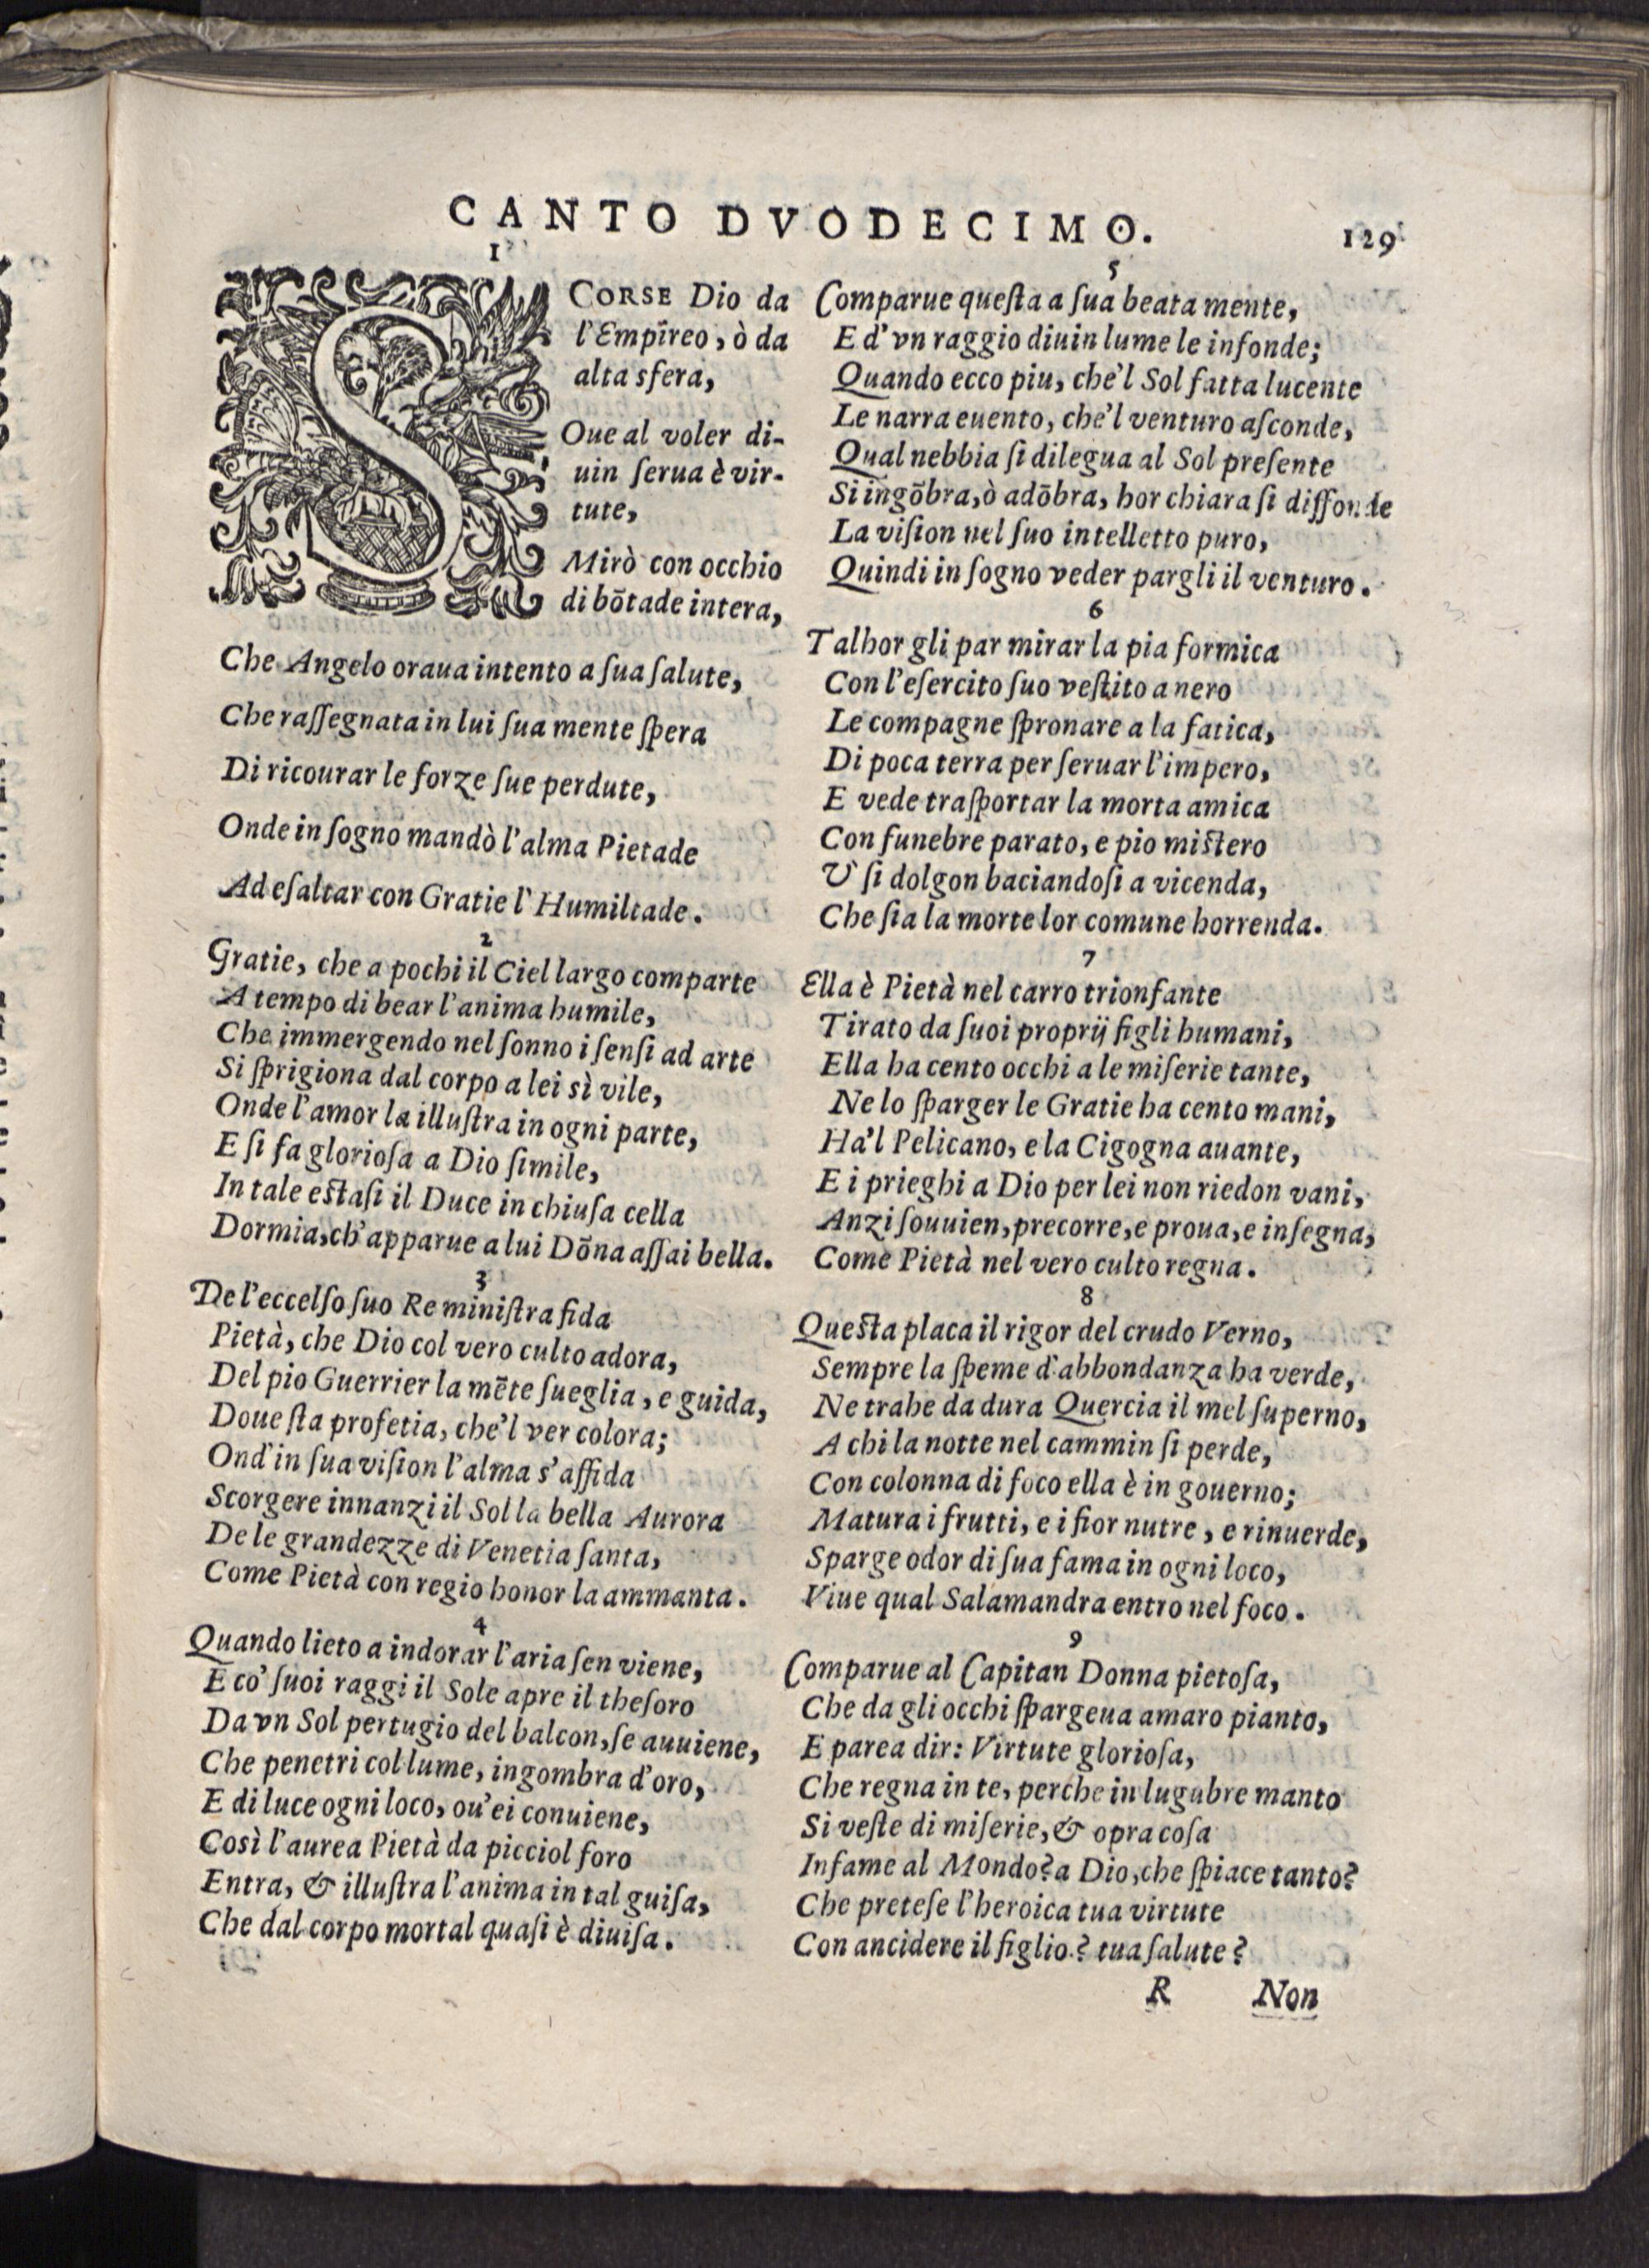 CANTO DVODECIMO.
129
1
SCORSE Dio da
l'Empireo, ò da
alta sfera,
Oue al voler di-
uin ſerua è vir-
tute,
Mirò con occhio
di bōtade intera,
Che Angelo oraua intento a ſua ſalute,
Che raſſegnata in lui ſua mente ſpera
Di ricourar le forze ſue perdute,
Onde in ſogno mandò l'alma Pietade
Ad eſaltar con Gratie l'Humiltade.
2
Gratie, che a pochi il Ciel largo comparte
A tempo di bear l'anima humile,
Che immergendo nel ſonno i ſenſi ad arte
Si ſprigiona dal corpo a lei sì vile,
Onde l'amor la illuſtra in ogni parte,
E ſi fa glorioſa a Dio ſimile,
In tale eſtaſi il Duce in chiuſa cella
Dormia, ch'apparue a lui Dōna aſſai bella.
3
De l'eccelſo ſuo Re miniſtra fida
Pietà, che Dio col vero culto adora,
Del pio Guerrier la mēte ſueglia, e guida,
Doue ſta profetia, che'l ver colora;
Ond'in ſua viſion l'alma s'affida
Scorgere innanzi il Sol la bella Aurora
De le grandezze di Venetia ſanta,
Come Pietà con regio honor la ammanta.
4
Quando lieto a indorar l'aria ſen viene,
E co' ſuoi raggi il Sole apre il theſoro
Da vn Sol pertugio del balcon, ſe auuiene,
Che penetri col lume, ingombra d'oro,
E di luce ogni loco, ou'ei conuiene,
Così l'aurea Pietà da picciol foro
Entra, & illuſtra l'anima in tal guiſa,
Che dal corpo mortal quaſi è diuiſa.
5
Comparue queſta a ſua beata mente,
E d'vn raggio diuin lume le infonde;
Quando ecco piu, che'l Sol fatta lucente
Le narra euento, che'l venturo aſconde,
Qual nebbia ſi dilegua al Sol preſente
Si ingōbra, ò adōbra, hor chiara ſi diffonde
La viſion nel ſuo intelletto puro,
Quindi in ſogno veder pargli il venturo.
6
Talhor gli par mirar la pia formica
Con l'eſercito ſuo veſtito a nero
Le compagne ſpronare a la fatica,
Di poca terra per ſeruar l'impero,
E vede traſportar la morta amica
Con funebre parato, e pio miſtero
V' ſi dolgon baciandoſi a vicenda,
Che ſia la morte lor comune horrenda.
7
Ella è Pietà nel carro trionfante
Tirato da ſuoi proprij figli humani,
Ella ha cento occhi a le miſerie tante,
Ne lo ſparger le Gratie ha cento mani,
Ha'l Pelicano, e la Cigogna auante,
E i prieghi a Dio per lei non riedon vani,
Anzi ſouuien, precorre, e proua, e inſegna,
Come Pietà nel vero culto regna.
8
Queſta placa il rigor del crudo Verno,
Sempre la ſpeme d'abbondanza ha verde,
Ne trahe da dura Quercia il mel ſuperno,
A chi la notte nel cammin ſi perde,
Con colonna di foco ella è in gouerno;
Matura i frutti, e i fior nutre, e rinuerde,
Sparge odor di ſua fama in ogni loco,
Viue qual Salamandra entro nel foco.
9
Comparue al Capitan Donna pietoſa,
Che da gli occhi ſpargeua amaro pianto,
E parea dir: Virtute glorioſa,
Che regna in te, perche in lugubre manto
Si veſte di miſerie, & opra coſa
Infame al Mondo? a Dio, che ſpiace tanto?
Che preteſe l'heroica tua virtute
Con ancidere il figlio? tua ſalute?
R Non